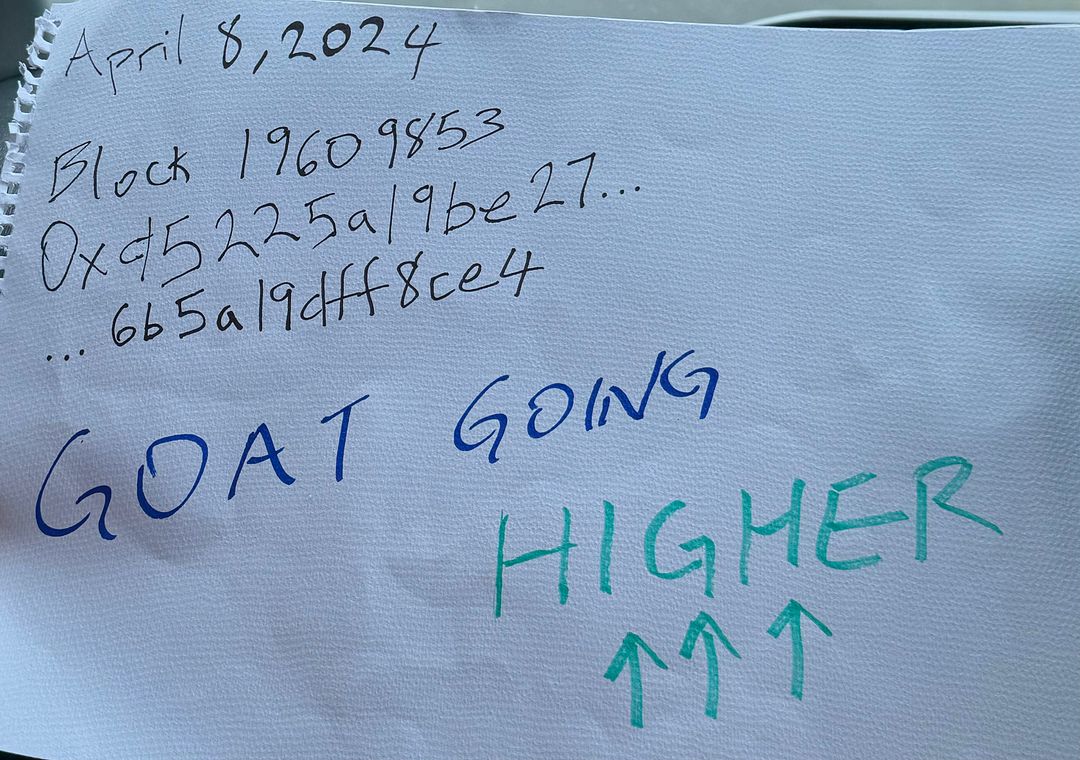 April 8, 2024
Block 19609853
0xd5225a19be27...
...6b5a19dff8ce4
GOAT GOING
HIGHER
↑↑↑